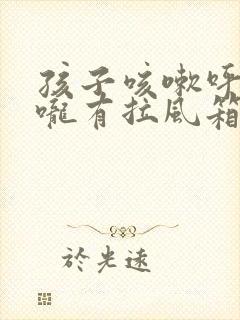 孩子咳嗽呼
嚨有拉風箱
於光遠